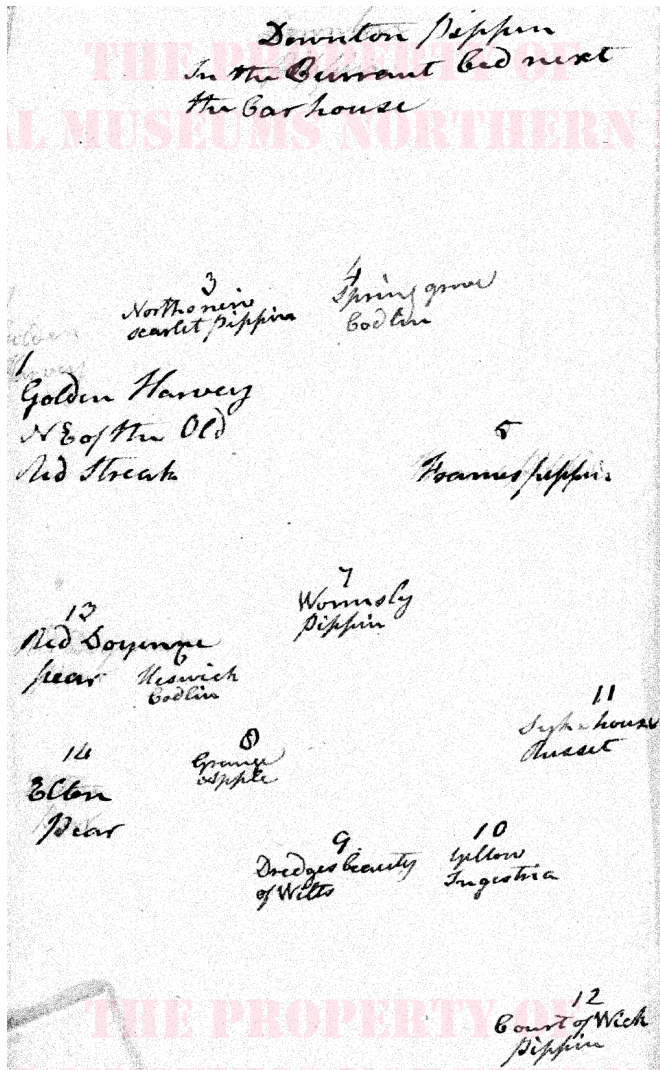 THE PROPERTY OF
Downton Pippin
In the Currant bed next
the Car house
AL MUSEUMS NORTHERN
3
scarlet Pippin
4
Spring grove
Codlin
Golden
Harvey
1
Golden Harvey
NE of the Old
Red Streak
5
pippin
7
Wormsly
Pippin
13
Red Doyenne
pear
6
Keswick
Codlin
11
Sykehouse
Russet
14
Elton
Pear
8
Grange
Apple
9
Dredges beauty
of Wilts
10
Yellow
Ingestria
12
Court of Wick
Pippin
THE PROPERTY OF